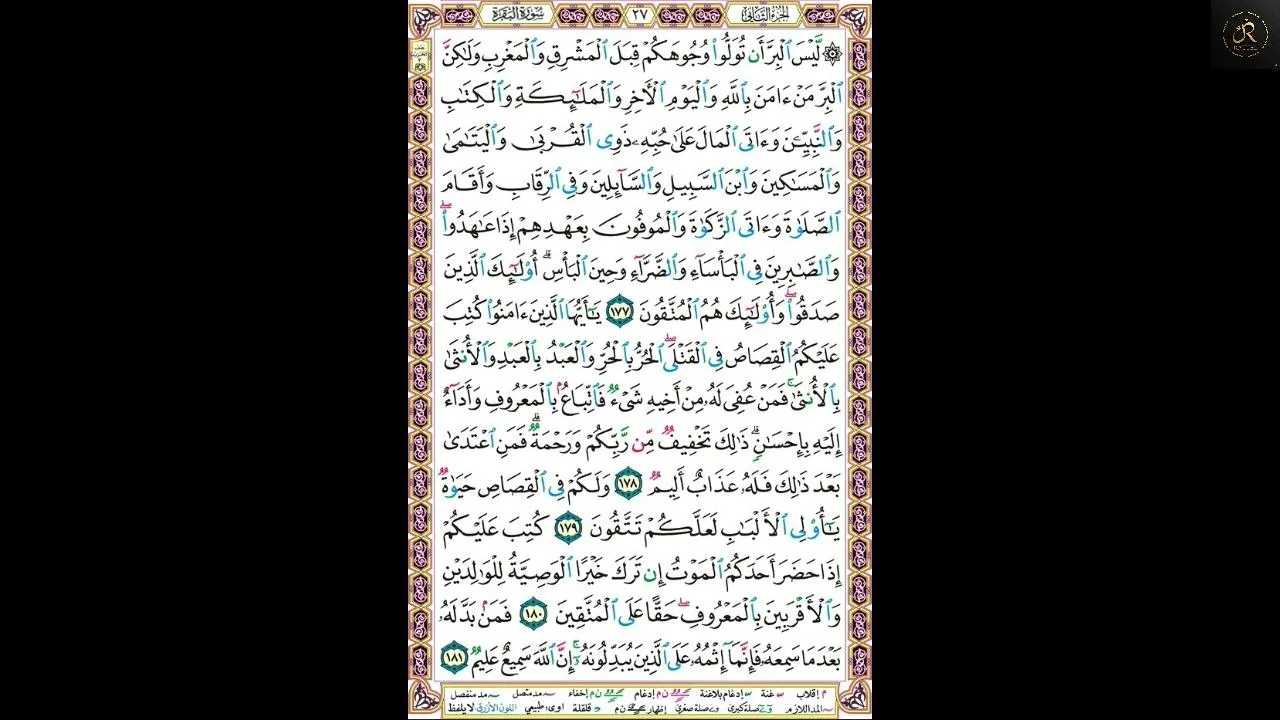 الجزء الثاني ٢٧ سورة البقرة
۞ لَّيْسَ ٱلْبِرَّ أَن تُوَلُّوا۟ وُجُوهَكُمْ قِبَلَ ٱلْمَشْرِقِ وَٱلْمَغْرِبِ وَلَٰكِنَّ
ٱلْبِرَّ مَنْ ءَامَنَ بِٱللَّهِ وَٱلْيَوْمِ ٱلْأَخِرِ وَٱلْمَلَٰٓئِكَةِ وَٱلْكِتَٰبِ
وَٱلنَّبِيِّـۧنَ وَءَاتَى ٱلْمَالَ عَلَىٰ حُبِّهِۦ ذَوِى ٱلْقُرْبَىٰ وَٱلْيَتَٰمَىٰ
وَٱلْمَسَٰكِينَ وَٱبْنَ ٱلسَّبِيلِ وَٱلسَّآئِلِينَ وَفِى ٱلرِّقَابِ وَأَقَامَ
ٱلصَّلَوٰةَ وَءَاتَى ٱلزَّكَوٰةَ وَٱلْمُوفُونَ بِعَهْدِهِمْ إِذَا عَٰهَدُوا۟ ۖ
وَٱلصَّٰبِرِينَ فِى ٱلْبَأْسَآءِ وَٱلضَّرَّآءِ وَحِينَ ٱلْبَأْسِ ۗ أُو۟لَٰٓئِكَ ٱلَّذِينَ
صَدَقُوا۟ ۖ وَأُو۟لَٰٓئِكَ هُمُ ٱلْمُتَّقُونَ ١٧٧ يَٰٓأَيُّهَا ٱلَّذِينَ ءَامَنُوا۟ كُتِبَ
عَلَيْكُمُ ٱلْقِصَاصُ فِى ٱلْقَتْلَى ۖ ٱلْحُرُّ بِٱلْحُرِّ وَٱلْعَبْدُ بِٱلْعَبْدِ وَٱلْأُنثَىٰ
بِٱلْأُنثَىٰ ۚ فَمَنْ عُفِىَ لَهُۥ مِنْ أَخِيهِ شَىْءٌ فَٱتِّبَاعٌۢ بِٱلْمَعْرُوفِ وَأَدَآءٌ
إِلَيْهِ بِإِحْسَٰنٍ ۗ ذَٰلِكَ تَخْفِيفٌ مِّن رَّبِّكُمْ وَرَحْمَةٌ ۗ فَمَنِ ٱعْتَدَىٰ
بَعْدَ ذَٰلِكَ فَلَهُۥ عَذَابٌ أَلِيمٌ ١٧٨ وَلَكُمْ فِى ٱلْقِصَاصِ حَيَوٰةٌ
يَٰٓأُو۟لِى ٱلْأَلْبَٰبِ لَعَلَّكُمْ تَتَّقُونَ ١٧٩ كُتِبَ عَلَيْكُمْ
إِذَا حَضَرَ أَحَدَكُمُ ٱلْمَوْتُ إِن تَرَكَ خَيْرًا ٱلْوَصِيَّةُ لِلْوَٰلِدَيْنِ
وَٱلْأَقْرَبِينَ بِٱلْمَعْرُوفِ ۖ حَقًّا عَلَى ٱلْمُتَّقِينَ ١٨٠ فَمَنۢ بَدَّلَهُۥ
بَعْدَ مَا سَمِعَهُۥ فَإِنَّمَآ إِثْمُهُۥ عَلَى ٱلَّذِينَ يُبَدِّلُونَهُۥٓ ۚ إِنَّ ٱللَّهَ سَمِيعٌ عَلِيمٌ ١٨١
م إقلاب غنة إدغام بلاغنة ن م إدغام ن م إخفاء مد متصل مد منفصل
المد اللازم صلة كبرى صلة صغرى إظهار ن م قلقلة اوى طبيعي اللون الأزرق لا يلفظ